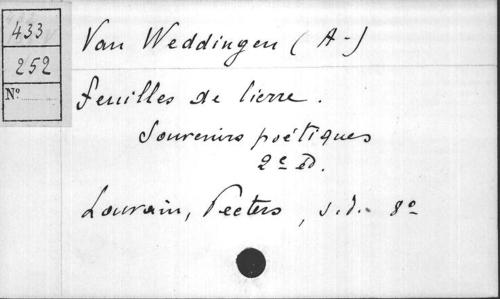 433
252
N°
Van Weddingen (A-)
Feuilles de lierre.
Souvenirs poétiques
2e Ed.
Louvain, Peeters, s.d. 8°